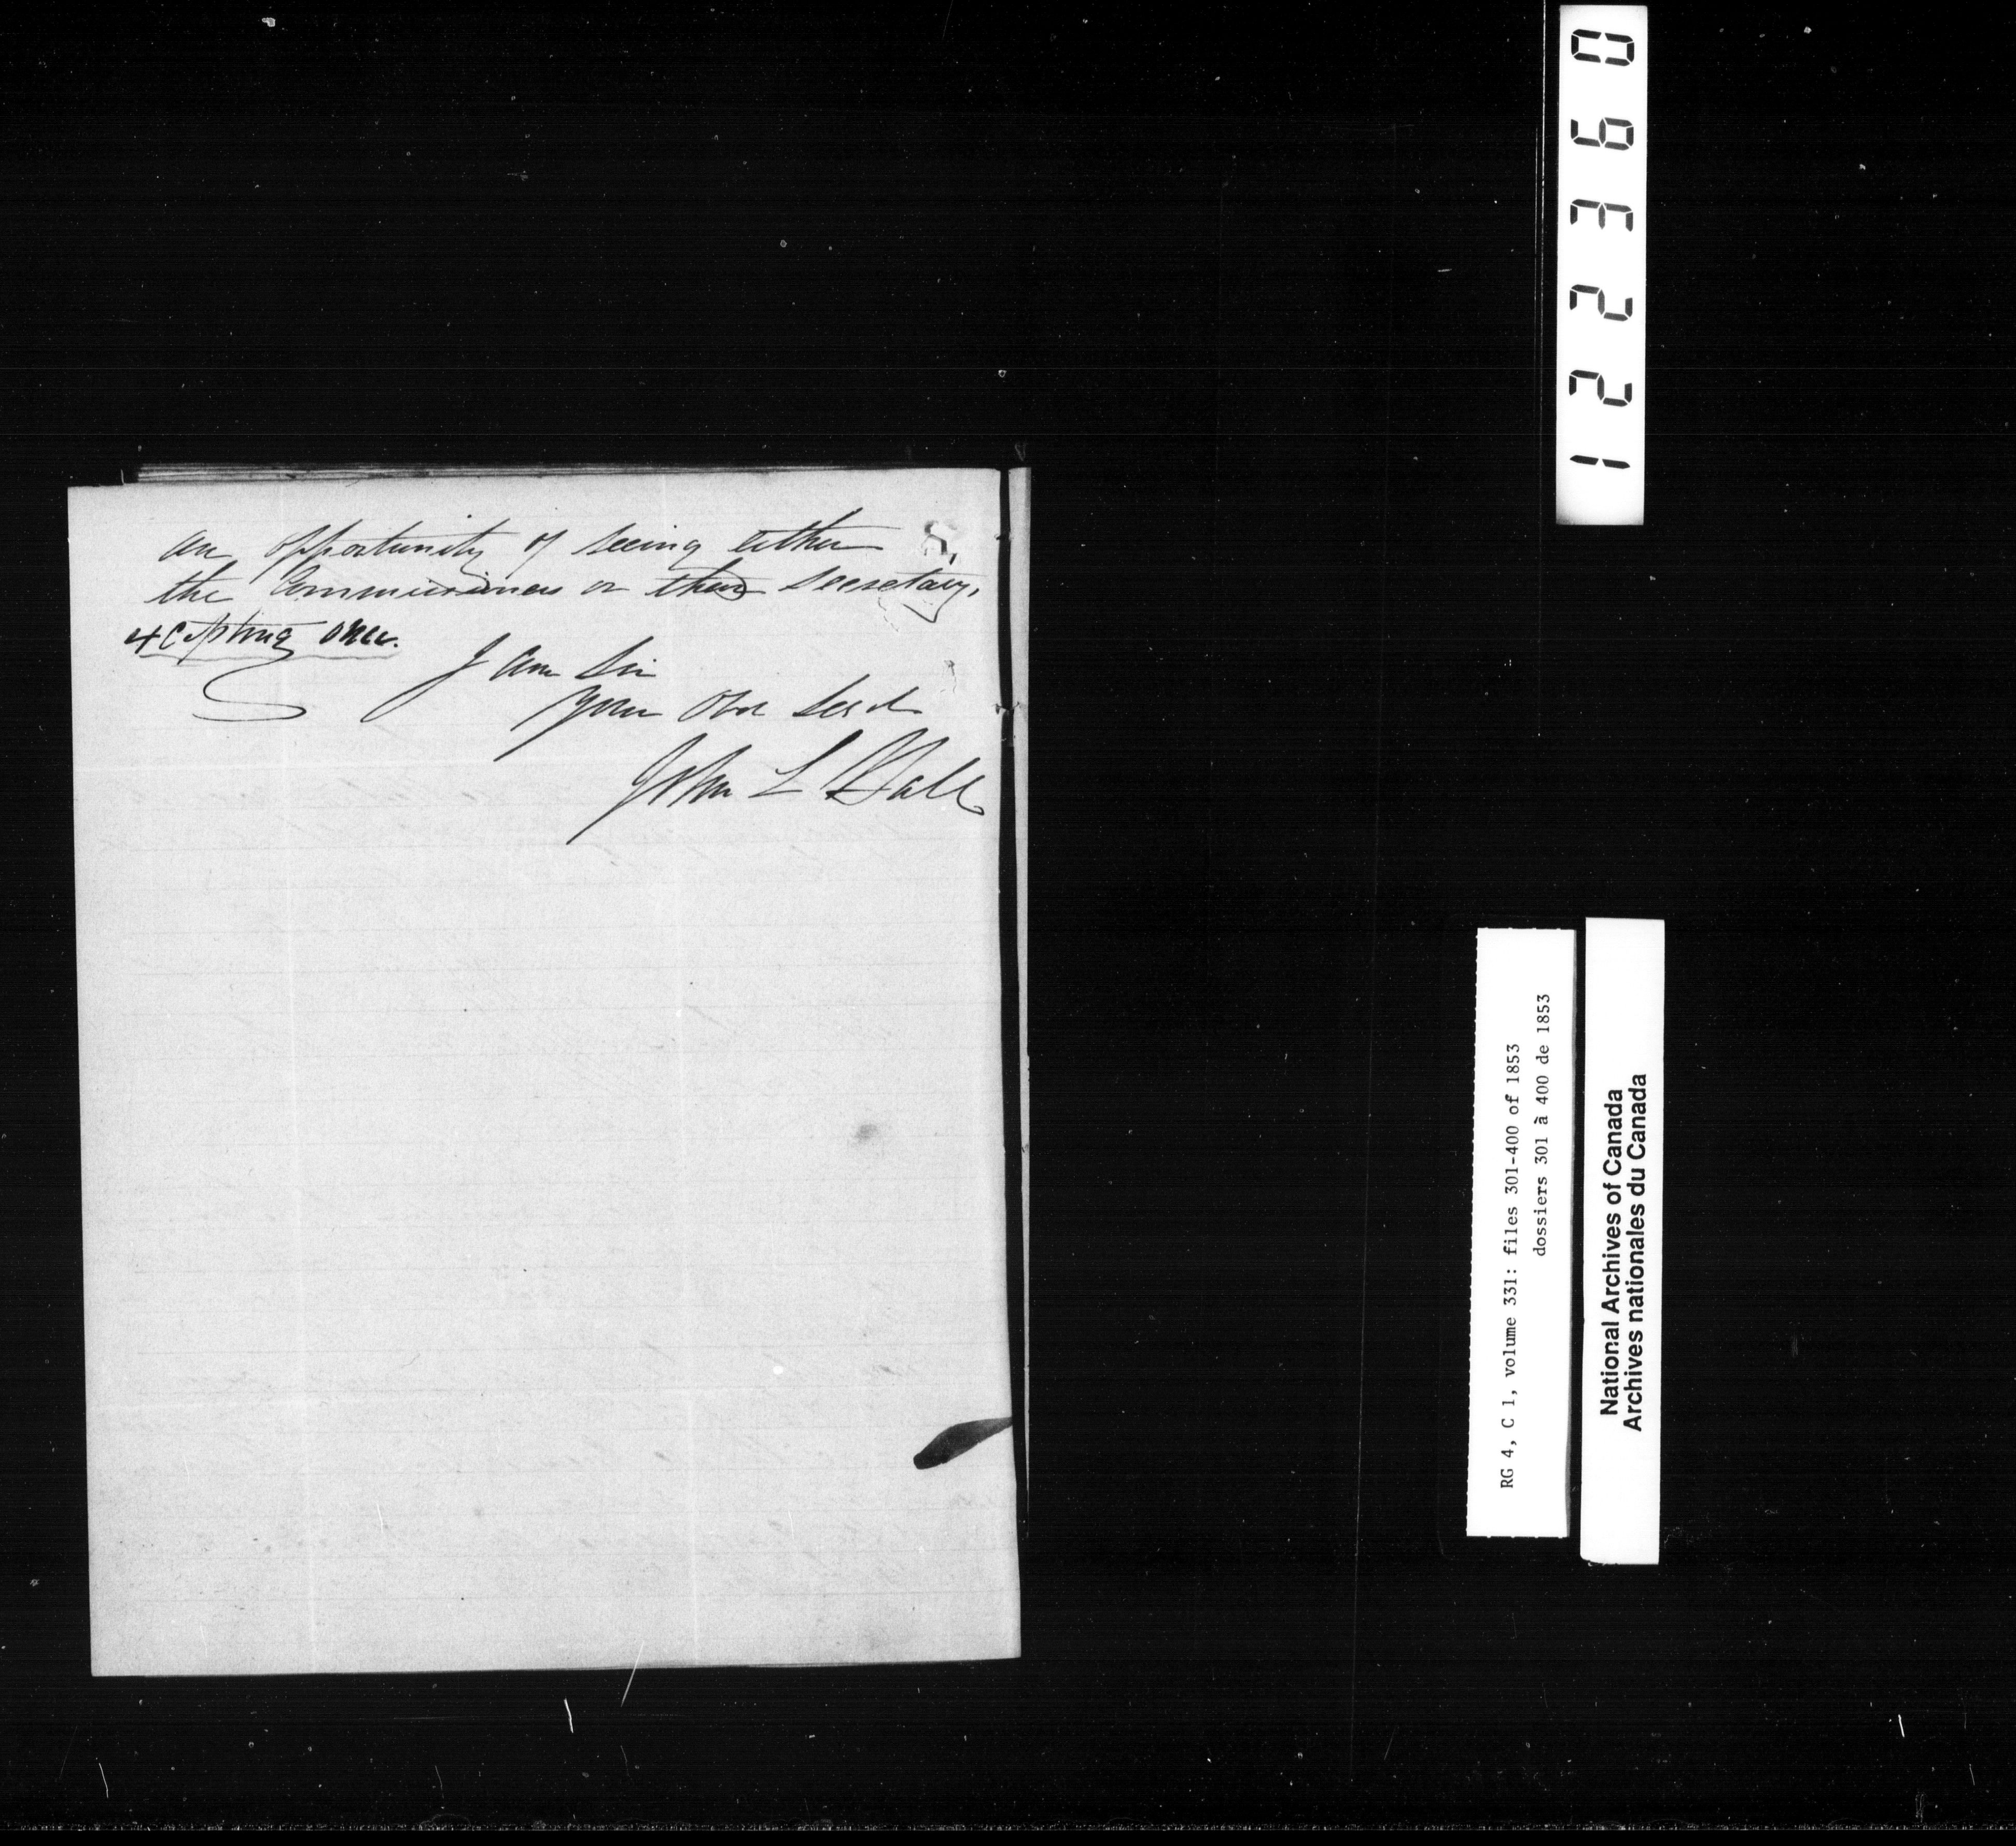 an opportunity of seeing either
the Commissioners or their Secretary,
excepting once.
I am Sir
Your Obt Servt
John L Hall
122360
RG 4, C 1, volume 331: files 301-400 of 1853
dossiers 301 à 400 de 1853
National Archives of Canada
Archives nationales du Canada